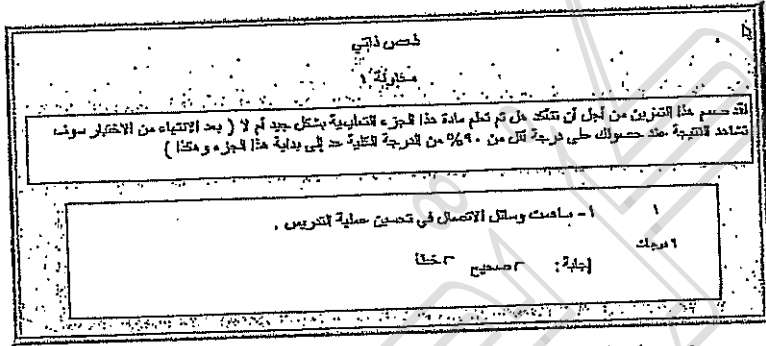 فحص ذاتي
محاولة ١
لقد صمم هذا التمرين من أجل أن تتأكد هل تم تعلم مادة هذا الجزء التعليمية بشكل جيد أم لا ( بعد الانتهاء من الاختبار سوف
تشاهد النتيجة عند حصولك على درجة أقل من ٩٠% من الدرجة الكلية عد إلى بداية هذا الجزء وهكذا )
١ ١- ساهمت وسائل الاتصال في تحسين عملية التدريس .
٢ درجات
إجابة: صحيح خطأ